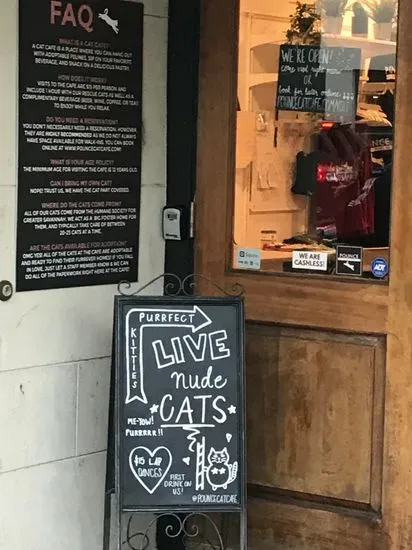 FAQ
WHAT IS A CAT CAFE?
A CAT CAFE IS A PLACE WHERE YOU CAN HANG OUT
WITH ADOPTABLE FELINES, SIP ON YOUR FAVORITE
BEVERAGE, AND SNACK ON A DELICIOUS PASTRY.
HOW DOES IT WORK?
VISITS TO THE CAFE ARE $15 PER PERSON AND
INCLUDE 1 HOUR WITH OUR RESCUE CATS AS WELL AS A
COMPLIMENTARY BEVERAGE (BEER, WINE, COFFEE, OR TEA)
TO ENJOY WHILE YOU RELAX.
DO YOU NEED A RESERVATION?
YOU DON'T NECESSARILY NEED A RESERVATION, HOWEVER
THEY ARE HIGHLY RECOMMENDED AS WE DO NOT ALWAYS
HAVE SPACE AVAILABLE FOR WALK-INS. YOU CAN BOOK
ONLINE AT WWW.POUNCECATCAFE.COM!
WHAT IS YOUR AGE POLICY?
THE MINIMUM AGE FOR VISITING THE CAFE IS 12 YEARS OLD.
CAN I BRING MY OWN CAT?
NOPE! TRUST US, WE HAVE THE CAT PART COVERED.
WHERE DO THE CATS COME FROM?
ALL OF OUR CATS COME FROM THE HUMANE SOCIETY FOR
GREATER SAVANNAH. WE ACT AS A BIG FOSTER HOME FOR
THEM, AND TYPICALLY TAKE CARE OF BETWEEN
20-25 CATS AT A TIME.
ARE THE CATS AVAILABLE FOR ADOPTION?
OMG YES! ALL OF THE CATS AT THE CAFE ARE ADOPTABLE
AND READY TO FIND THEIR FURREVER HOMES! IF YOU FALL
IN LOVE, JUST LET A STAFF MEMBER KNOW & WE CAN
DO ALL OF THE PAPERWORK RIGHT HERE AT THE CAFE!
WE'RE OPEN!
come visit right meow
OR
book for later online at
POUNCECATCAFE.COM/VISIT
WE ARE
CASHLESS
POUNCE
ADT
PURRFECT
KITTIES
LIVE
nude
CATS
ME-YOW!
PURRRRR!!
$15 LAP
DANCES
FIRST
DRINK ON
US!
@POUNCECATCAFE